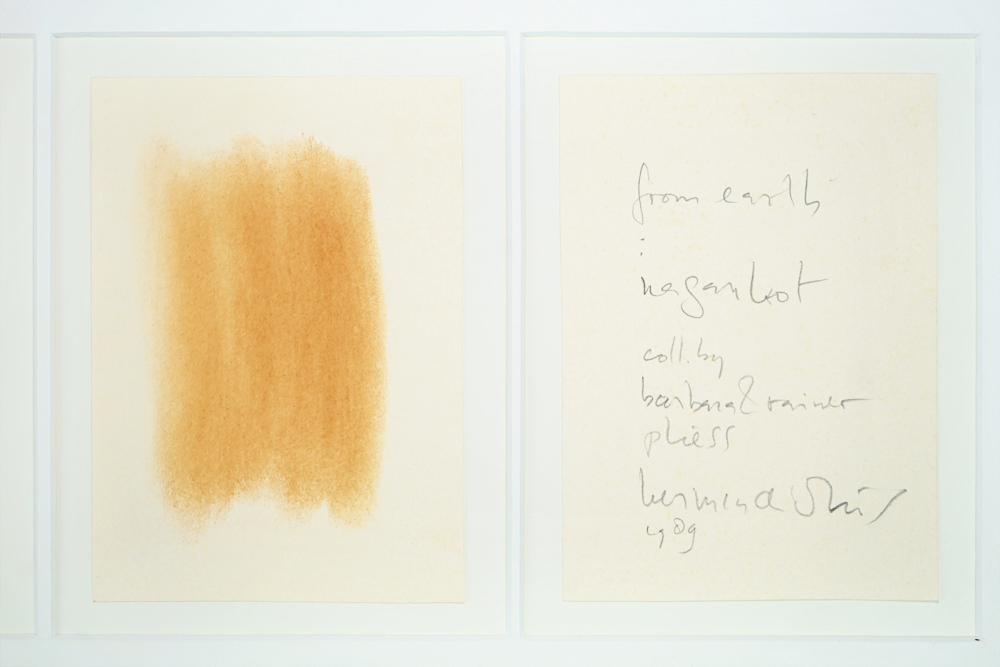 from earth
:
nagarkot
coll. by
barbara & rainer
pliess
herman de vries
1989